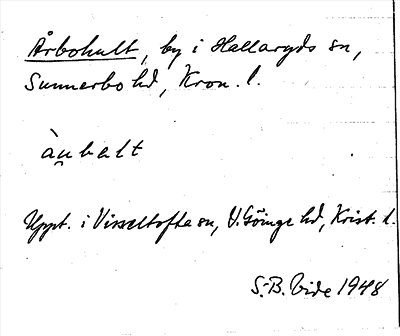 Årbohult, by i Hallaryds sn,
Sunnerbo hd, Kron. l.
àu̯halt
Uppt. i Visseltofta sn, V. Göinge hd, Krist. l.
S.-B. Vide 1948